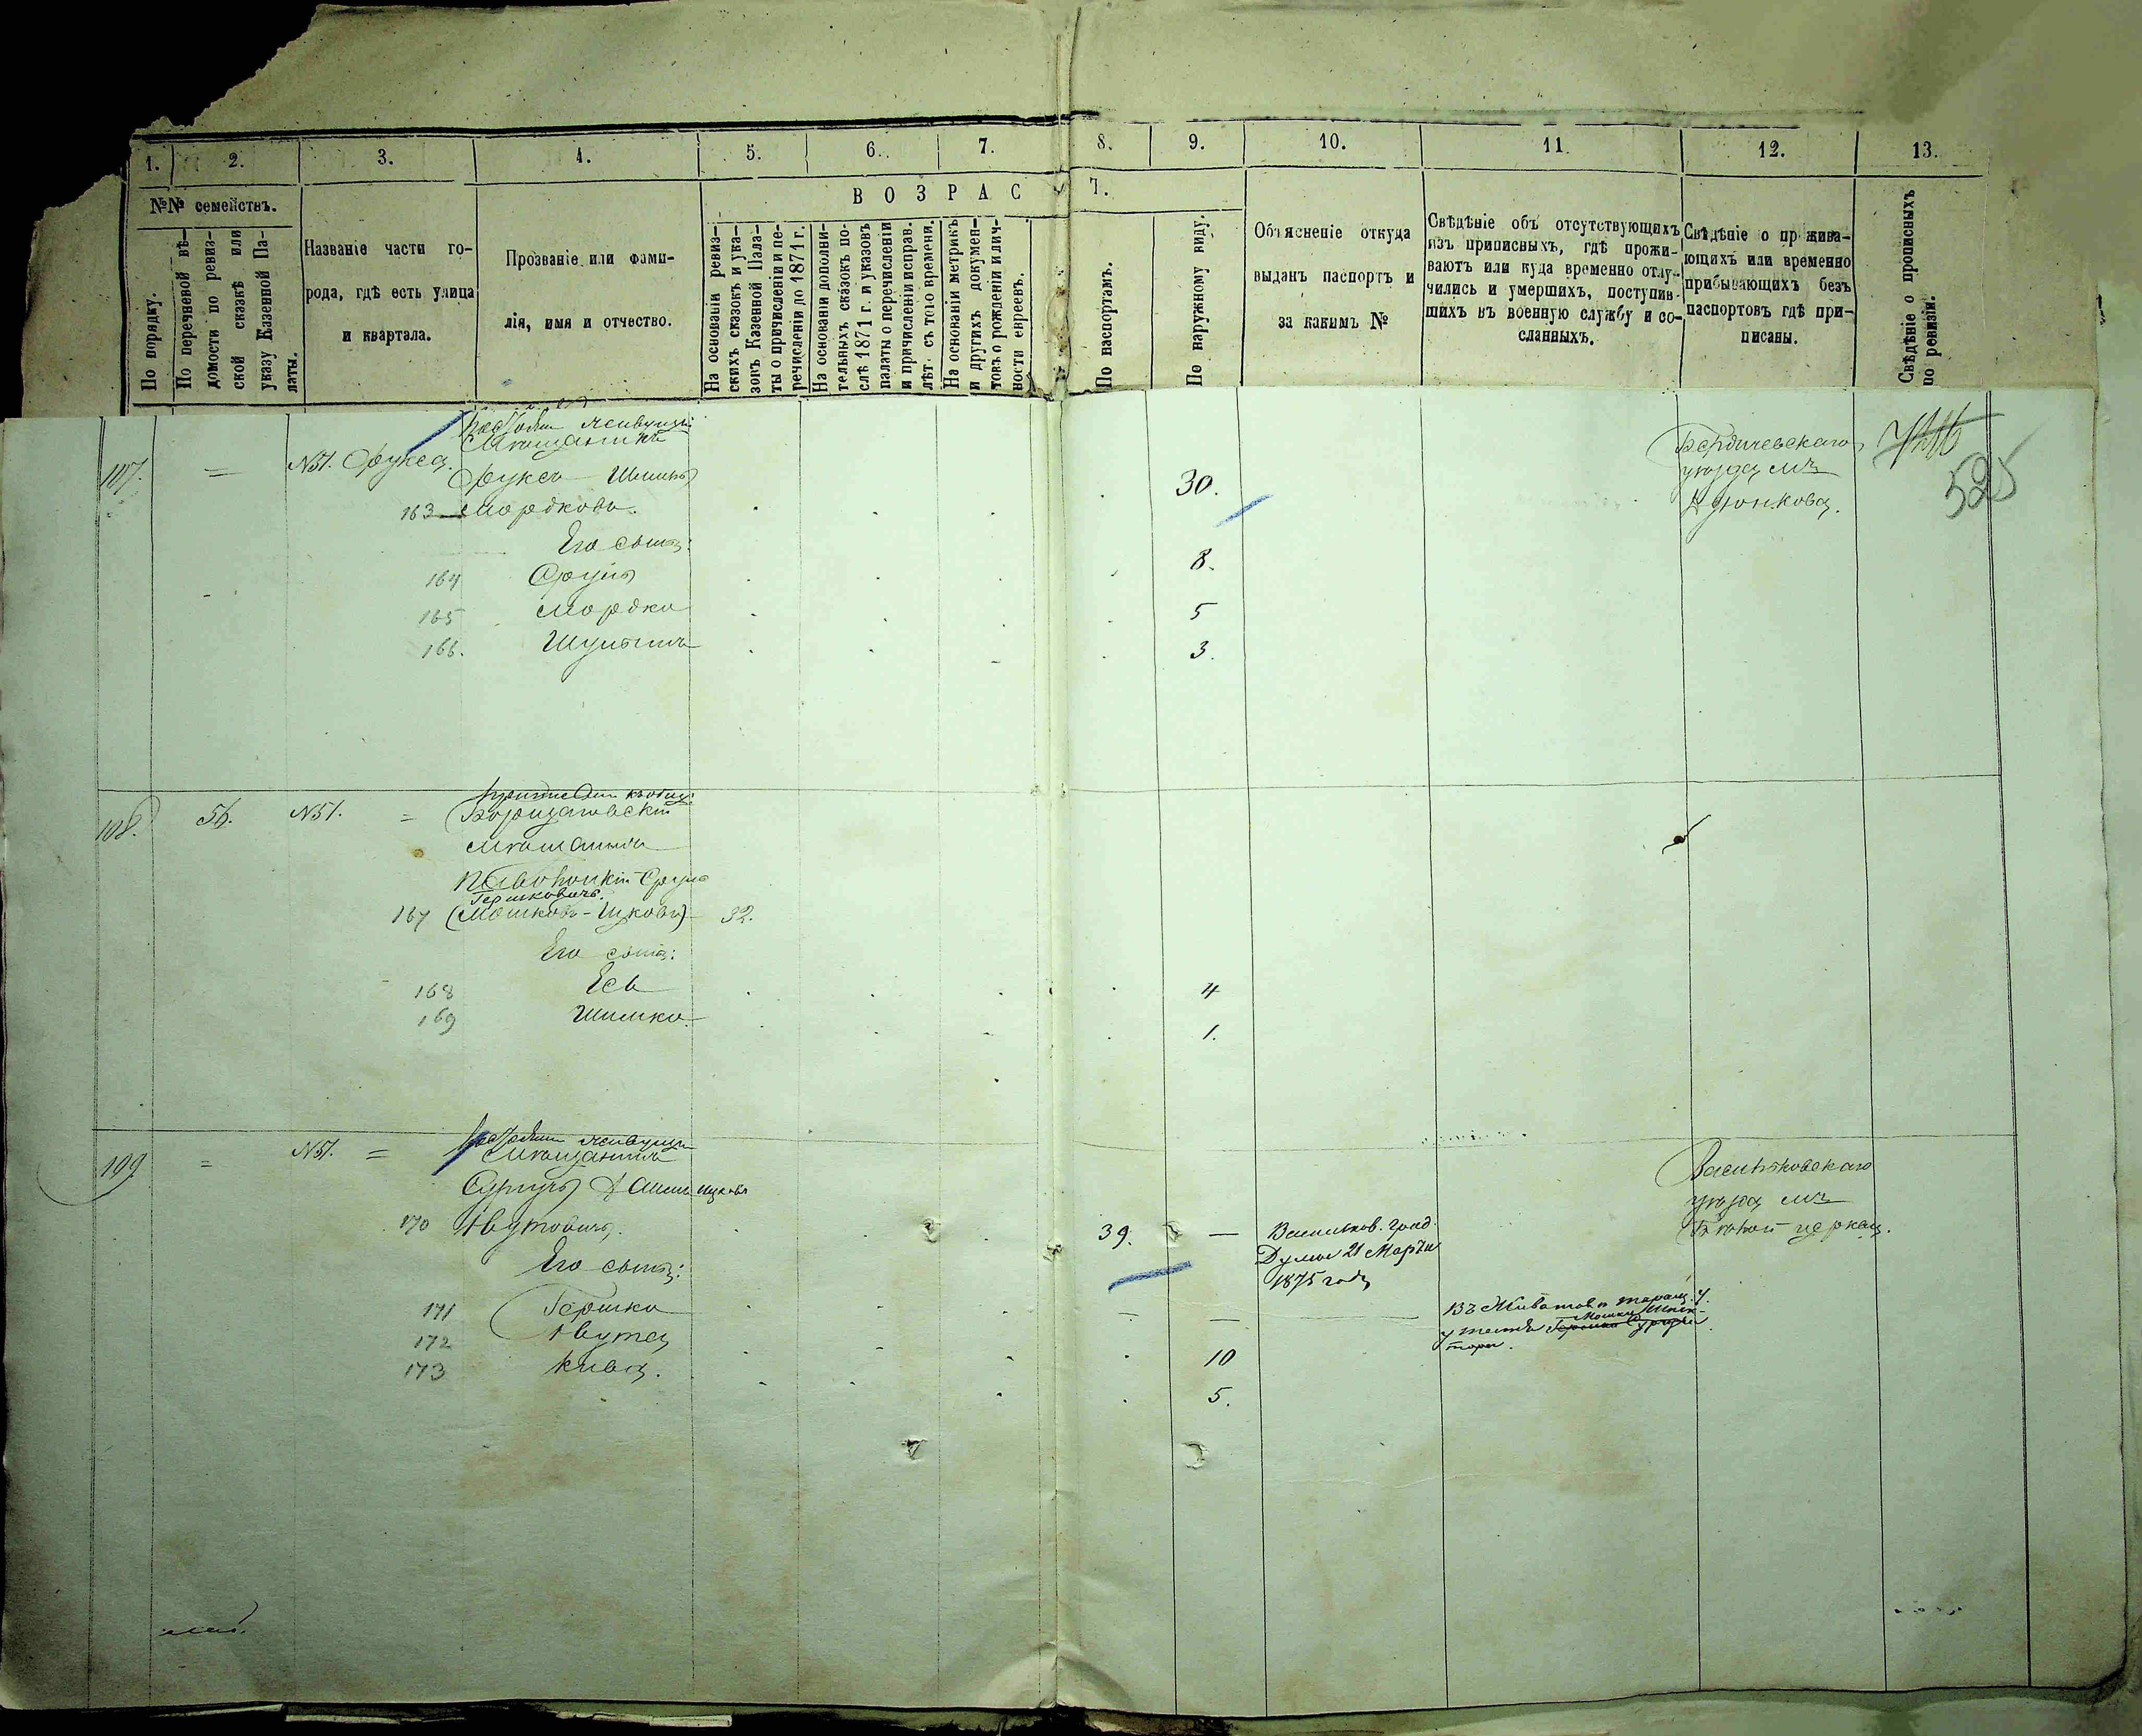 1. 2. 3. 4. 5. 6. 7. 8. 9. 10. 11. 12. 13.
№№ семействъ.
По порядку.
По перечневой вѣ-
домости по ревиз-
ской сказкѣ или
указу Казенной Па-
латы.
Названіе части го-
рода, гдѣ есть улица
и квартала.
Прозваніе или фами-
лія, имя и отчество.
ВОЗРАС
Т.
На основаніи ревиз-
скихъ сказокъ и ука-
зовъ Казенной Пала-
ты о причисленіи и пе-
речисленіи до 1871 г.
На основаніи дополни-
тельныхъ сказокъ по-
слѣ 1871 г. и указовъ
палаты о перечисленіи
и причисленіи исправ.
лѣт. съ того времени.
На основаніи метрикъ
и другихъ докумен-
товъ о рожденіи и лич-
ности евреевъ.
По паспортамъ.
По наружному виду.
Объясненіе откуда
выданъ паспортъ и
за какимъ №
Свѣдѣніе объ отсутствующихъ
изъ приписныхъ, гдѣ прожи-
ваютъ или куда временно отлу-
чились и умершихъ, поступив-
шихъ въ военную службу и со-
сланныхъ.
Свѣдѣніе о прожива-
ющихъ или временно
прибывающихъ безъ
паспортовъ гдѣ при-
писаны.
Свѣдѣніе о прописныхъ
по ревизіи.
107. = №51. Фукса.
Мѣщанинъ
Фуксъ
163 Мордковъ. 30.
Бердичевскаго
уѣзда мѣ
Дзюнькова.
525
Его сыны:
164 Сруль 8.
165 Мордко 5
166. Шулимъ 3.
108. 56. №51. =
мѣщанинъ
Сруль
Гершковичъ.
167 (Мошковъ-Ицковъ) 32.
Его сыны:
168 Есь 4
169 Шимко. 1.
109 = №51. =
Мѣщанинъ
Ицковъ
170 39. —
Васильков. град.
Думы 21 Марта
1875 года
Васильковскаго
уѣзда мѣ
Бѣлой церкви.
Его сыны:
171 Гершко — —
172 Авута 10
173 Кива. 5.
Въ Животовѣ таращ. у.
Мошки
у тестя